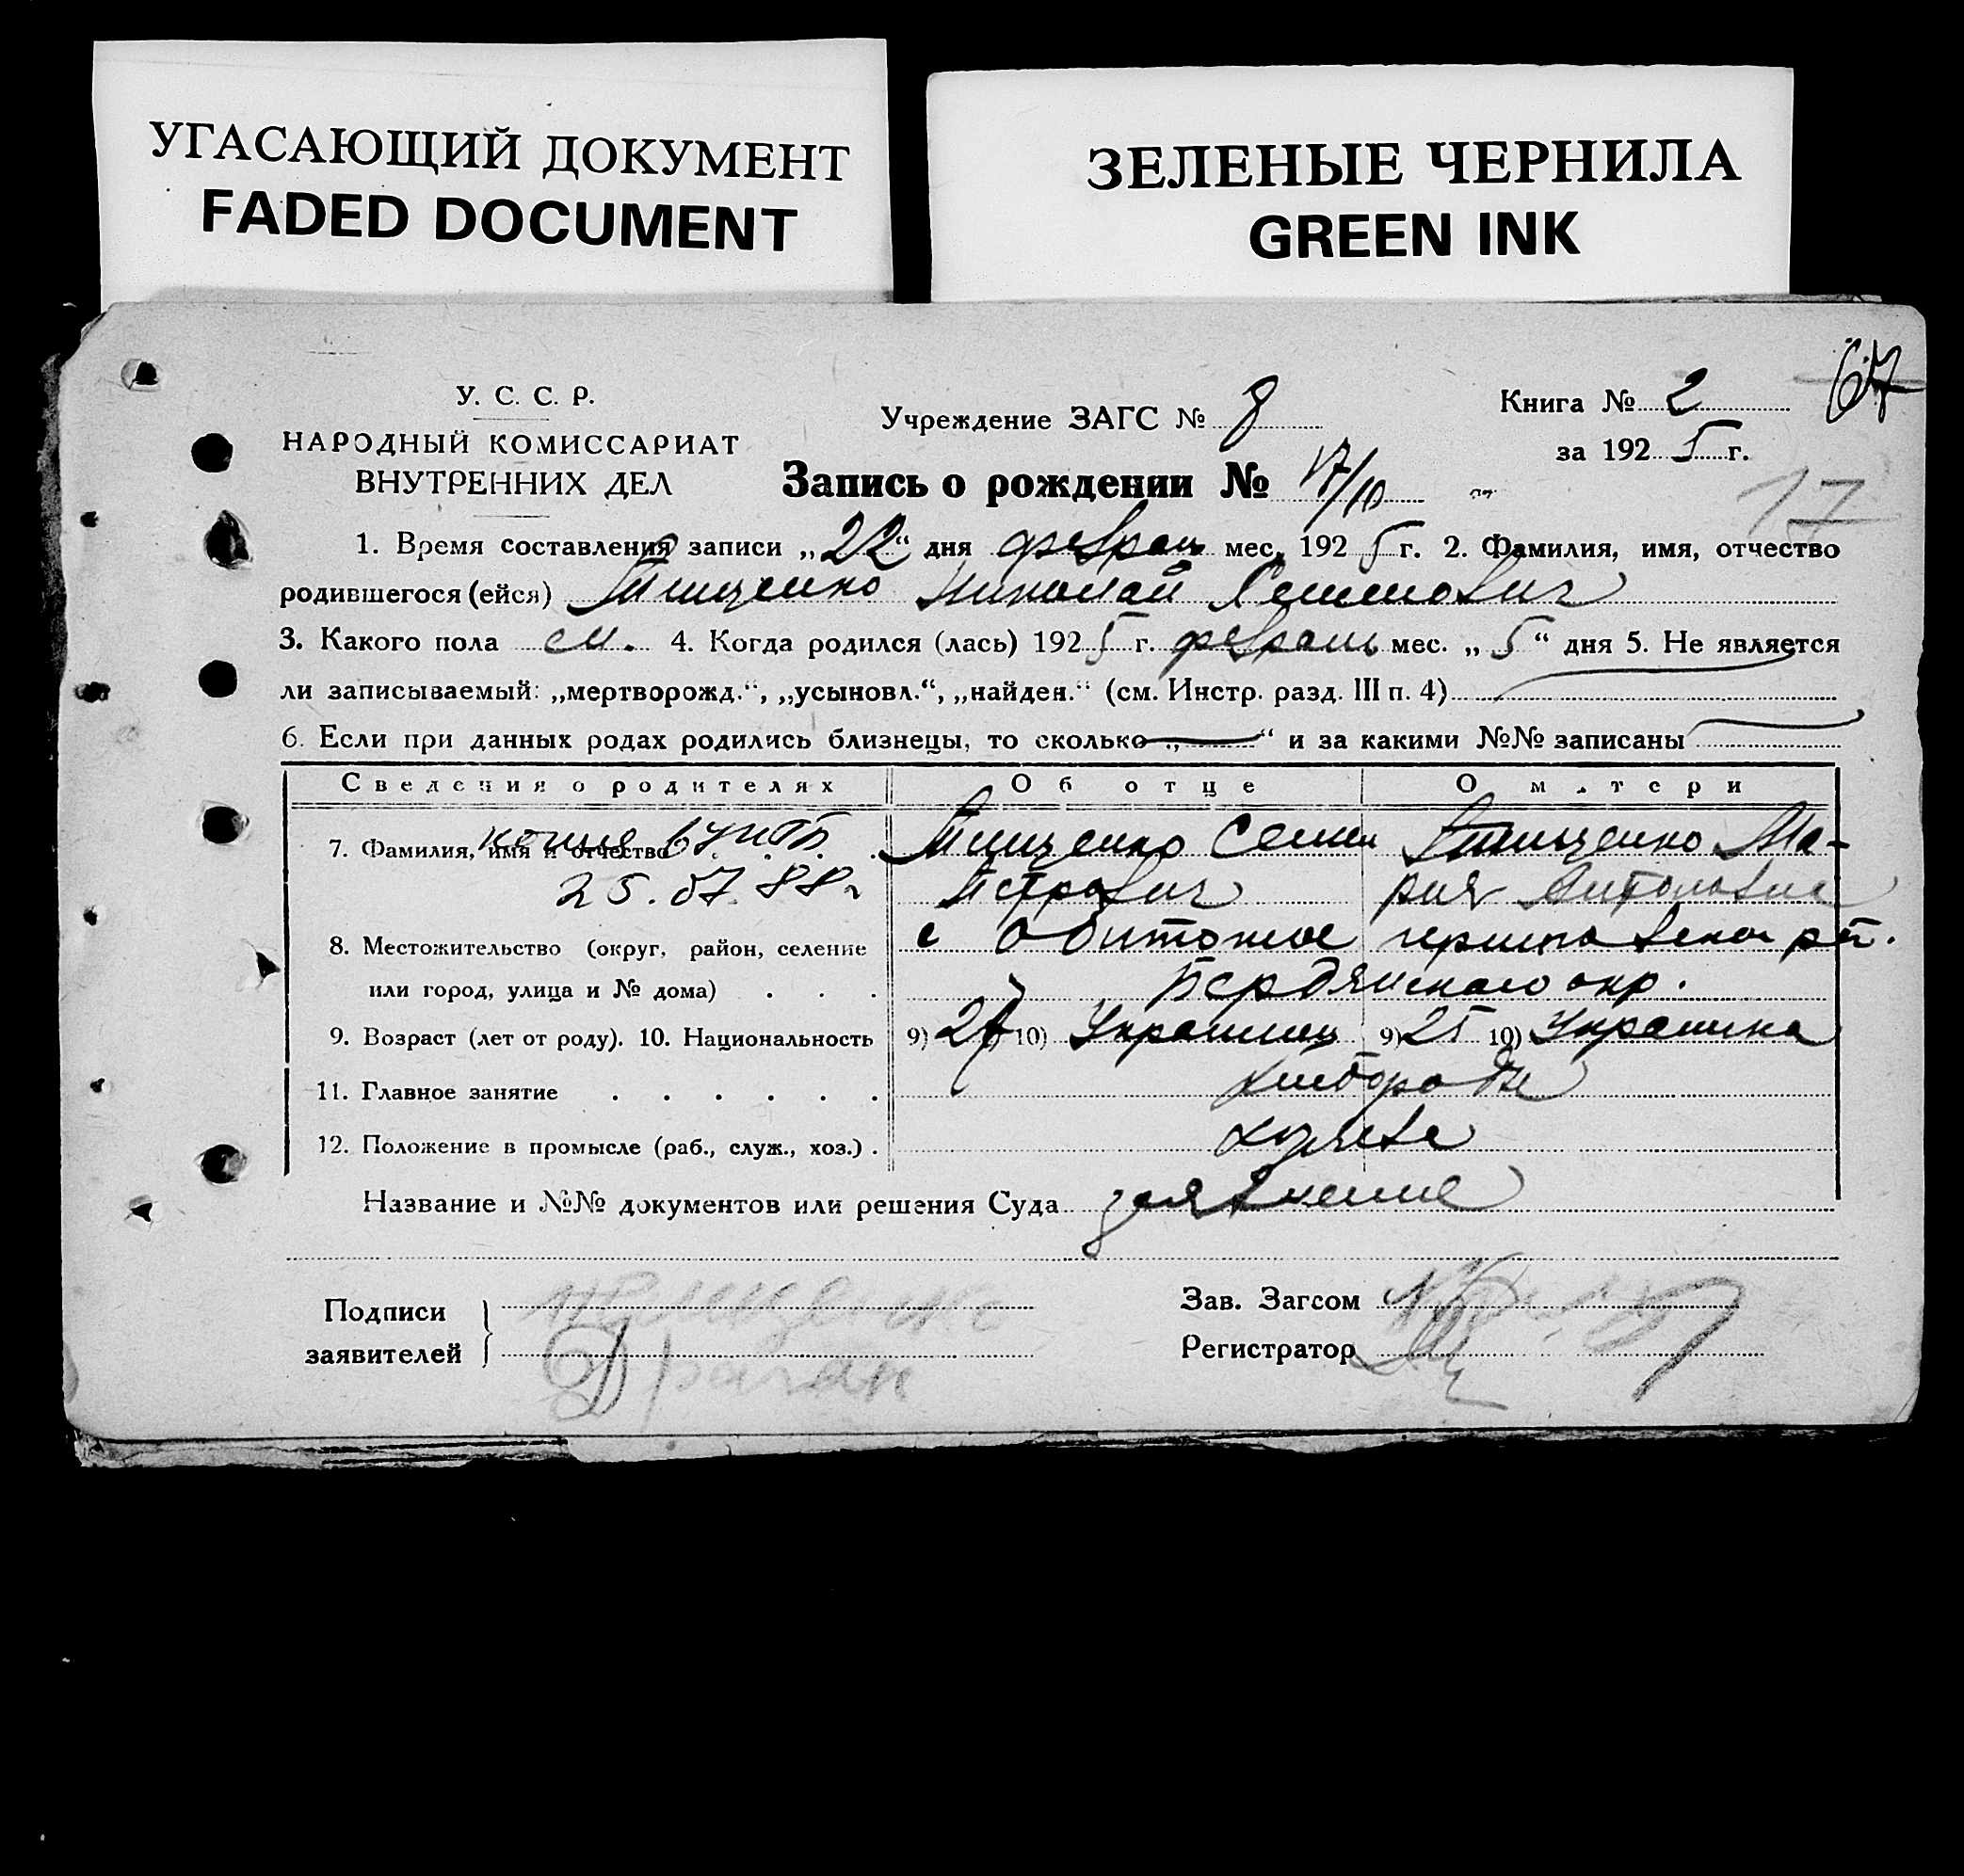 УГАСАЮЩИЙ ДОКУМЕНТ
FADED DOCUMENT
ЗЕЛЕНЫЕ ЧЕРНИЛА
GREEN INK
У. С. С. Р.
НАРОДНЫЙ КОМИССАРИАТ
ВНУТРЕННИХ ДЕЛ
Учреждение ЗАГС № 8
Книга № 2
67
за 1925 г.
Запись о рождении № 17/10
17
1. Время составления записи „22“ дня феврал мес. 1925 г. 2. Фамилия, имя, отчество
родившегося (ейся) Тищенко Николай Семенович
3. Какого пола м. 4. Когда родился (лась) 1925 г. февраль мес. „5“ дня 5. Не является
ли записываемый: „мертворожд.“, „усыновл.“, „найден.“ (см. Инстр. разд. III п. 4)
6. Если при данных родах родились близнецы, то сколько „—“ и за какими №№ записаны
Сведения о родителях Об отце О матери
7. Фамилия, имя и отчество
25.07.88г
Тищенко Семен
Петрович
Тищенко Ма-
рия Антоновна
8. Местожительство (округ, район, селение
или город, улица и № дома) . . .
с Обиточное черниговской р-н.
Бердянского окр.
9. Возраст (лет от роду). 10. Национальность 9) 27 10) Украинец 9) 25 10) Украинка
11. Главное занятие . . . . . . хлебороды
12. Положение в промысле (раб., служ., хоз.) . хозяева
Название и №№ документов или решения Суда заявление
Подписи
заявителей
Тищенко
Драган
Зав. Загсом
Регистратор